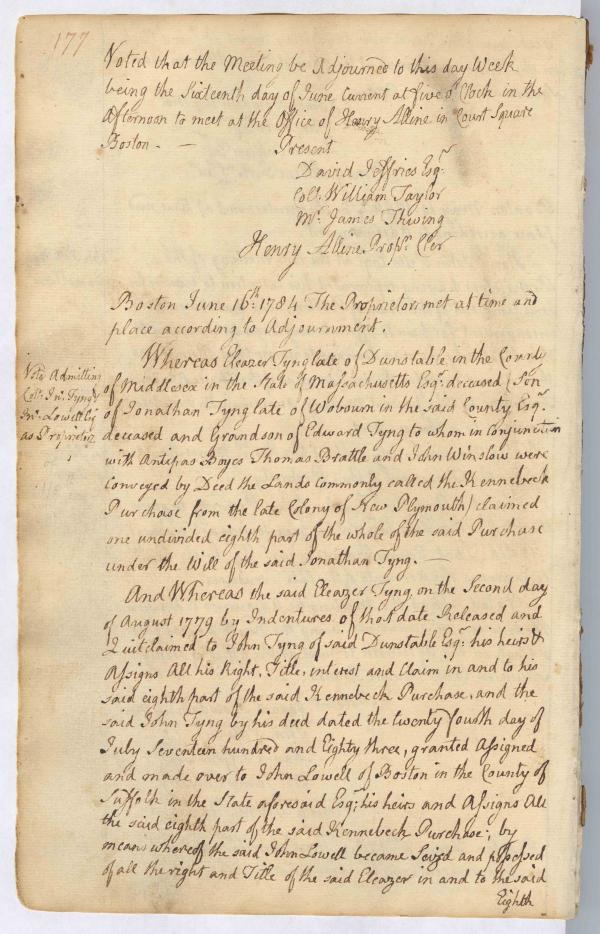 177
Voted that the Meeting be Adjourned to this day Week
being the Sixteenth day of June Current at five o'Clock in the
Afternoon to meet at the Office of Henry Alline in Court Square
Boston. — Present
David Jeffries Esqr
Colo. William Taylor
Mr. James Thwing
Henry Alline Propr. Cler
Boston June 16th. 1784 The Proprietors met at time and
place according to Adjournment.
Vote Admitting
Colo. Jno. Tyng &
Jno. Lowell Esq
as Proprietors
Whereas Eleazer Tyng late of Dunstable in the County
of Middlesex in the State of Massachusetts Esqr. deceased (Son
of Jonathan Tyng late of Wobourn in the said County Esqr.
deceased and Grandson of Edward Tyng to whom in conjunction
with Antipas Boyes Thomas Brattle and John Winslow were
Conveyed by Deed the Lands commonly called the Kennebeck
Purchase from the late Colony of New Plymouth) claimed
one undivided eighth part of the whole of the said Purchase
under the Will of the said Jonathan Tyng. —
And Whereas the said Eleazer Tyng, on the Second day
of August 1779 by Indentures of that date Released and
Quitclaimed to John Tyng of said Dunstable Esqr. his heirs &
Assigns All his Right, Title, interest and Claim in and to his
said eighth part of the said Kennebeck Purchase, and the
said John Tyng by his deed dated the twenty fourth day of
July Seventeen hundred and Eighty three, granted Assigned
and made over to John Lowell of Boston in the County of
Suffolk in the State aforesaid Esqr; his heirs and Assigns All
the said eighth part of the said Kennebeck Purchase; by
means whereof the said John Lowell became Seizd and possessed
of all the right and Title of the said Eleazer in and to the said
Eighth